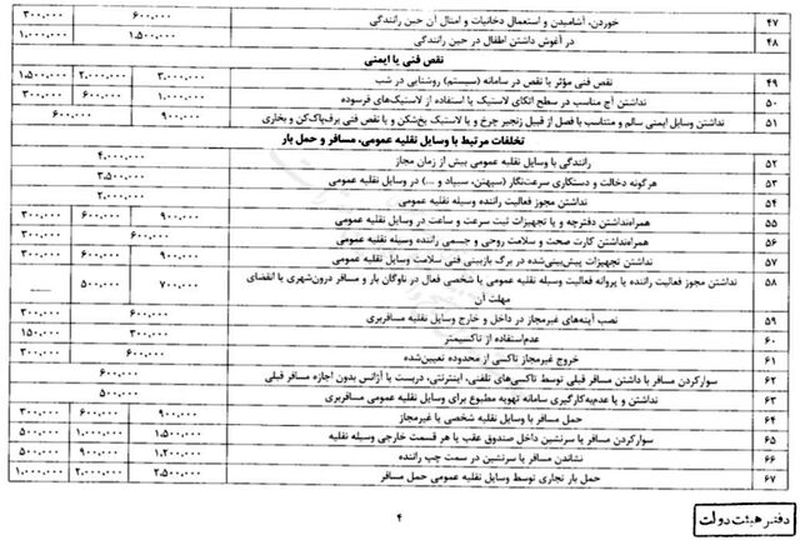 ۴۷ خوردن، آشامیدن و استعمال دخانیات و امثال آن حین رانندگی ۶۰۰,۰۰۰ ۳۰۰,۰۰۰
۴۸ در آغوش داشتن اطفال در حین رانندگی ۱,۵۰۰,۰۰۰ ۱,۰۰۰,۰۰۰
نقص فنی یا ایمنی
۴۹ نقص فنی مؤثر یا نقص در سامانه (سیستم) روشنایی در شب ۳,۰۰۰,۰۰۰ ۲,۰۰۰,۰۰۰ ۱,۵۰۰,۰۰۰
۵۰ نداشتن آج مناسب در سطح اتکای لاستیک یا استفاده از لاستیک‌های فرسوده ۱,۰۰۰,۰۰۰ ۶۰۰,۰۰۰ ۳۰۰,۰۰۰
۵۱ نداشتن وسایل ایمنی سالم و متناسب با فصل از قبیل زنجیر چرخ و یا لاستیک یخ‌شکن و یا نقص فنی برف‌پاک‌کن و بخاری ۹۰۰,۰۰۰ ۶۰۰,۰۰۰
تخلفات مرتبط با وسایل نقلیه عمومی، مسافر و حمل بار
۵۲ رانندگی با وسایل نقلیه عمومی بیش از زمان مجاز ۴,۰۰۰,۰۰۰
۵۳ هرگونه دخالت و دستکاری سرعت‌نگار (سپهتن، سیپاد و ...) در وسایل نقلیه عمومی ۳,۵۰۰,۰۰۰
۵۴ نداشتن مجوز فعالیت راننده وسیله نقلیه عمومی ۲,۰۰۰,۰۰۰
۵۵ همراه‌نداشتن دفترچه و یا تجهیزات ثبت سرعت و ساعت در وسایل نقلیه عمومی ۹۰۰,۰۰۰ ۶۰۰,۰۰۰ ۳۰۰,۰۰۰
۵۶ همراه‌نداشتن کارت صحت و سلامت روحی و جسمی راننده وسیله نقلیه عمومی ۶۰۰,۰۰۰ ۳۰۰,۰۰۰
۵۷ نداشتن تجهیزات پیش‌بینی‌شده در برگ بازبینی فنی سلامت وسایل نقلیه عمومی ۹۰۰,۰۰۰ ۶۰۰,۰۰۰ ۳۰۰,۰۰۰
۵۸ نداشتن مجوز فعالیت راننده یا پروانه فعالیت وسیله نقلیه عمومی یا شخصی فعال در ناوگان بار و مسافر درون‌شهری یا انقضای ۷۰۰,۰۰۰ ۵۰۰,۰۰۰ —
مهلت آن
۵۹ نصب آینه‌های غیرمجاز در داخل و خارج وسایل نقلیه مسافربری ۶۰۰,۰۰۰ ۳۰۰,۰۰۰
۶۰ عدم‌استفاده از تاکسیمتر ۳۰۰,۰۰۰ ۱۵۰,۰۰۰
۶۱ خروج غیرمجاز تاکسی از محدوده تعیین‌شده ۶۰۰,۰۰۰ ۳۰۰,۰۰۰
۶۲ سوارکردن مسافر با داشتن مسافر قبلی توسط تاکسی‌های تلفنی، اینترنتی، دربست یا آژانس بدون اجازه مسافر قبلی ۶۰۰,۰۰۰
۶۳ نداشتن و یا عدم‌به‌کارگیری سامانه تهویه مطبوع برای وسایل نقلیه عمومی مسافربری ۵۰۰,۰۰۰
۶۴ حمل مسافر با وسایل نقلیه شخصی یا غیرمجاز ۹۰۰,۰۰۰ ۶۰۰,۰۰۰ ۳۰۰,۰۰۰
۶۵ سوارکردن مسافر یا سرنشین داخل صندوق عقب یا هر قسمت خارجی وسیله نقلیه ۱,۵۰۰,۰۰۰ ۱,۰۰۰,۰۰۰ ۵۰۰,۰۰۰
۶۶ نشاندن مسافر یا سرنشین در سمت چپ راننده ۱,۲۰۰,۰۰۰ ۹۰۰,۰۰۰ ۵۰۰,۰۰۰
۶۷ حمل بار تجاری توسط وسایل نقلیه عمومی حمل مسافر ۲,۵۰۰,۰۰۰ ۲,۰۰۰,۰۰۰ ۱,۰۰۰,۰۰۰
۴
دفتر هیئت دولت